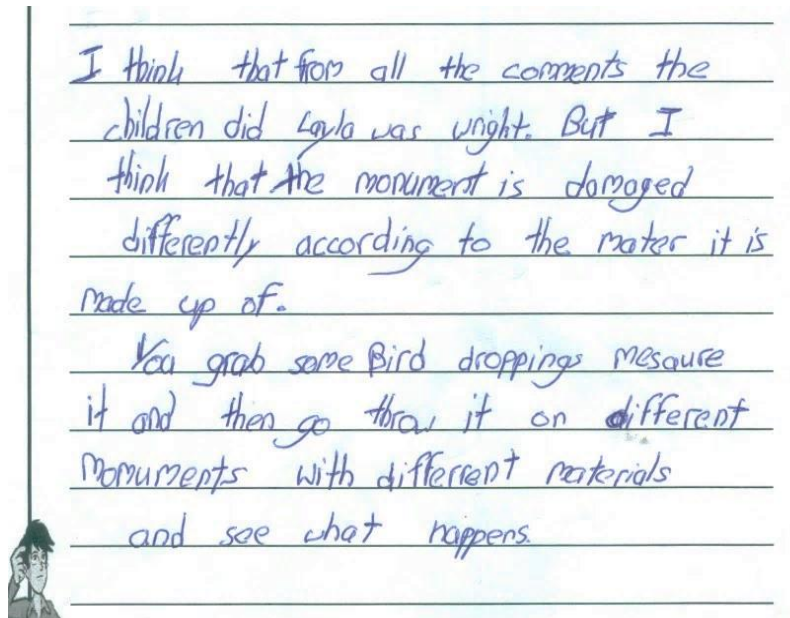 I think that from all the comments the
children did Layla was wright. But I
think that the monument is damaged
differently according to the mater it is
made up of.
You grab some Bird droppings mesaure
it and then go throw it on different
Monuments with differrent materials
and see what happens.